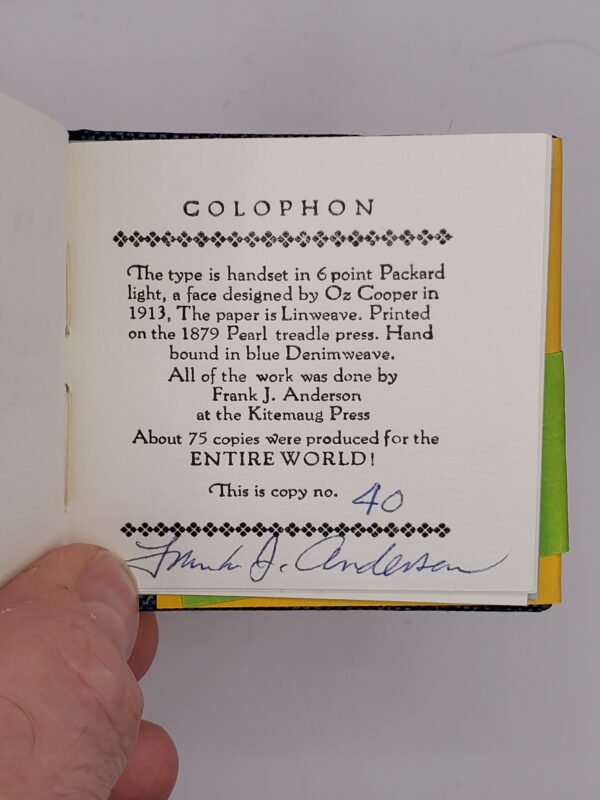 COLOPHON
The type is handset in 6 point Packard
light, a face designed by Oz Cooper in
1913, The paper is Linweave. Printed
on the 1879 Pearl treadle press. Hand
bound in blue Denimweave.
All of the work was done by
Frank J. Anderson
at the Kitemaug Press
About 75 copies were produced for the
ENTIRE WORLD!
This is copy no. 40
Frank J. Anderson